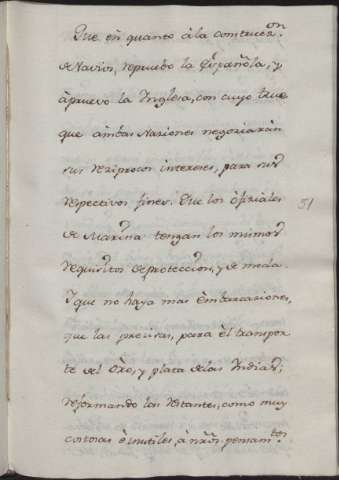 Que en quanto à la construcz.on
de Navios, repruebo la Española, y
àpruevo la Inglesa, con cuyo true
que ambas Naciones negociaràn
sus reziprocos intereses, para sus
respectivos fines. Que los òficiales
de Marina tengan los mismos
requisitos de proteccion, y de meda.
Y que no haya mas èmbarcaciones,
que las precisas, para èl transpor
te del Oro, y plata de las Indias;
reformando las restantes, como muy
costosas è inutiles, à nr̃os pensam.tos
51